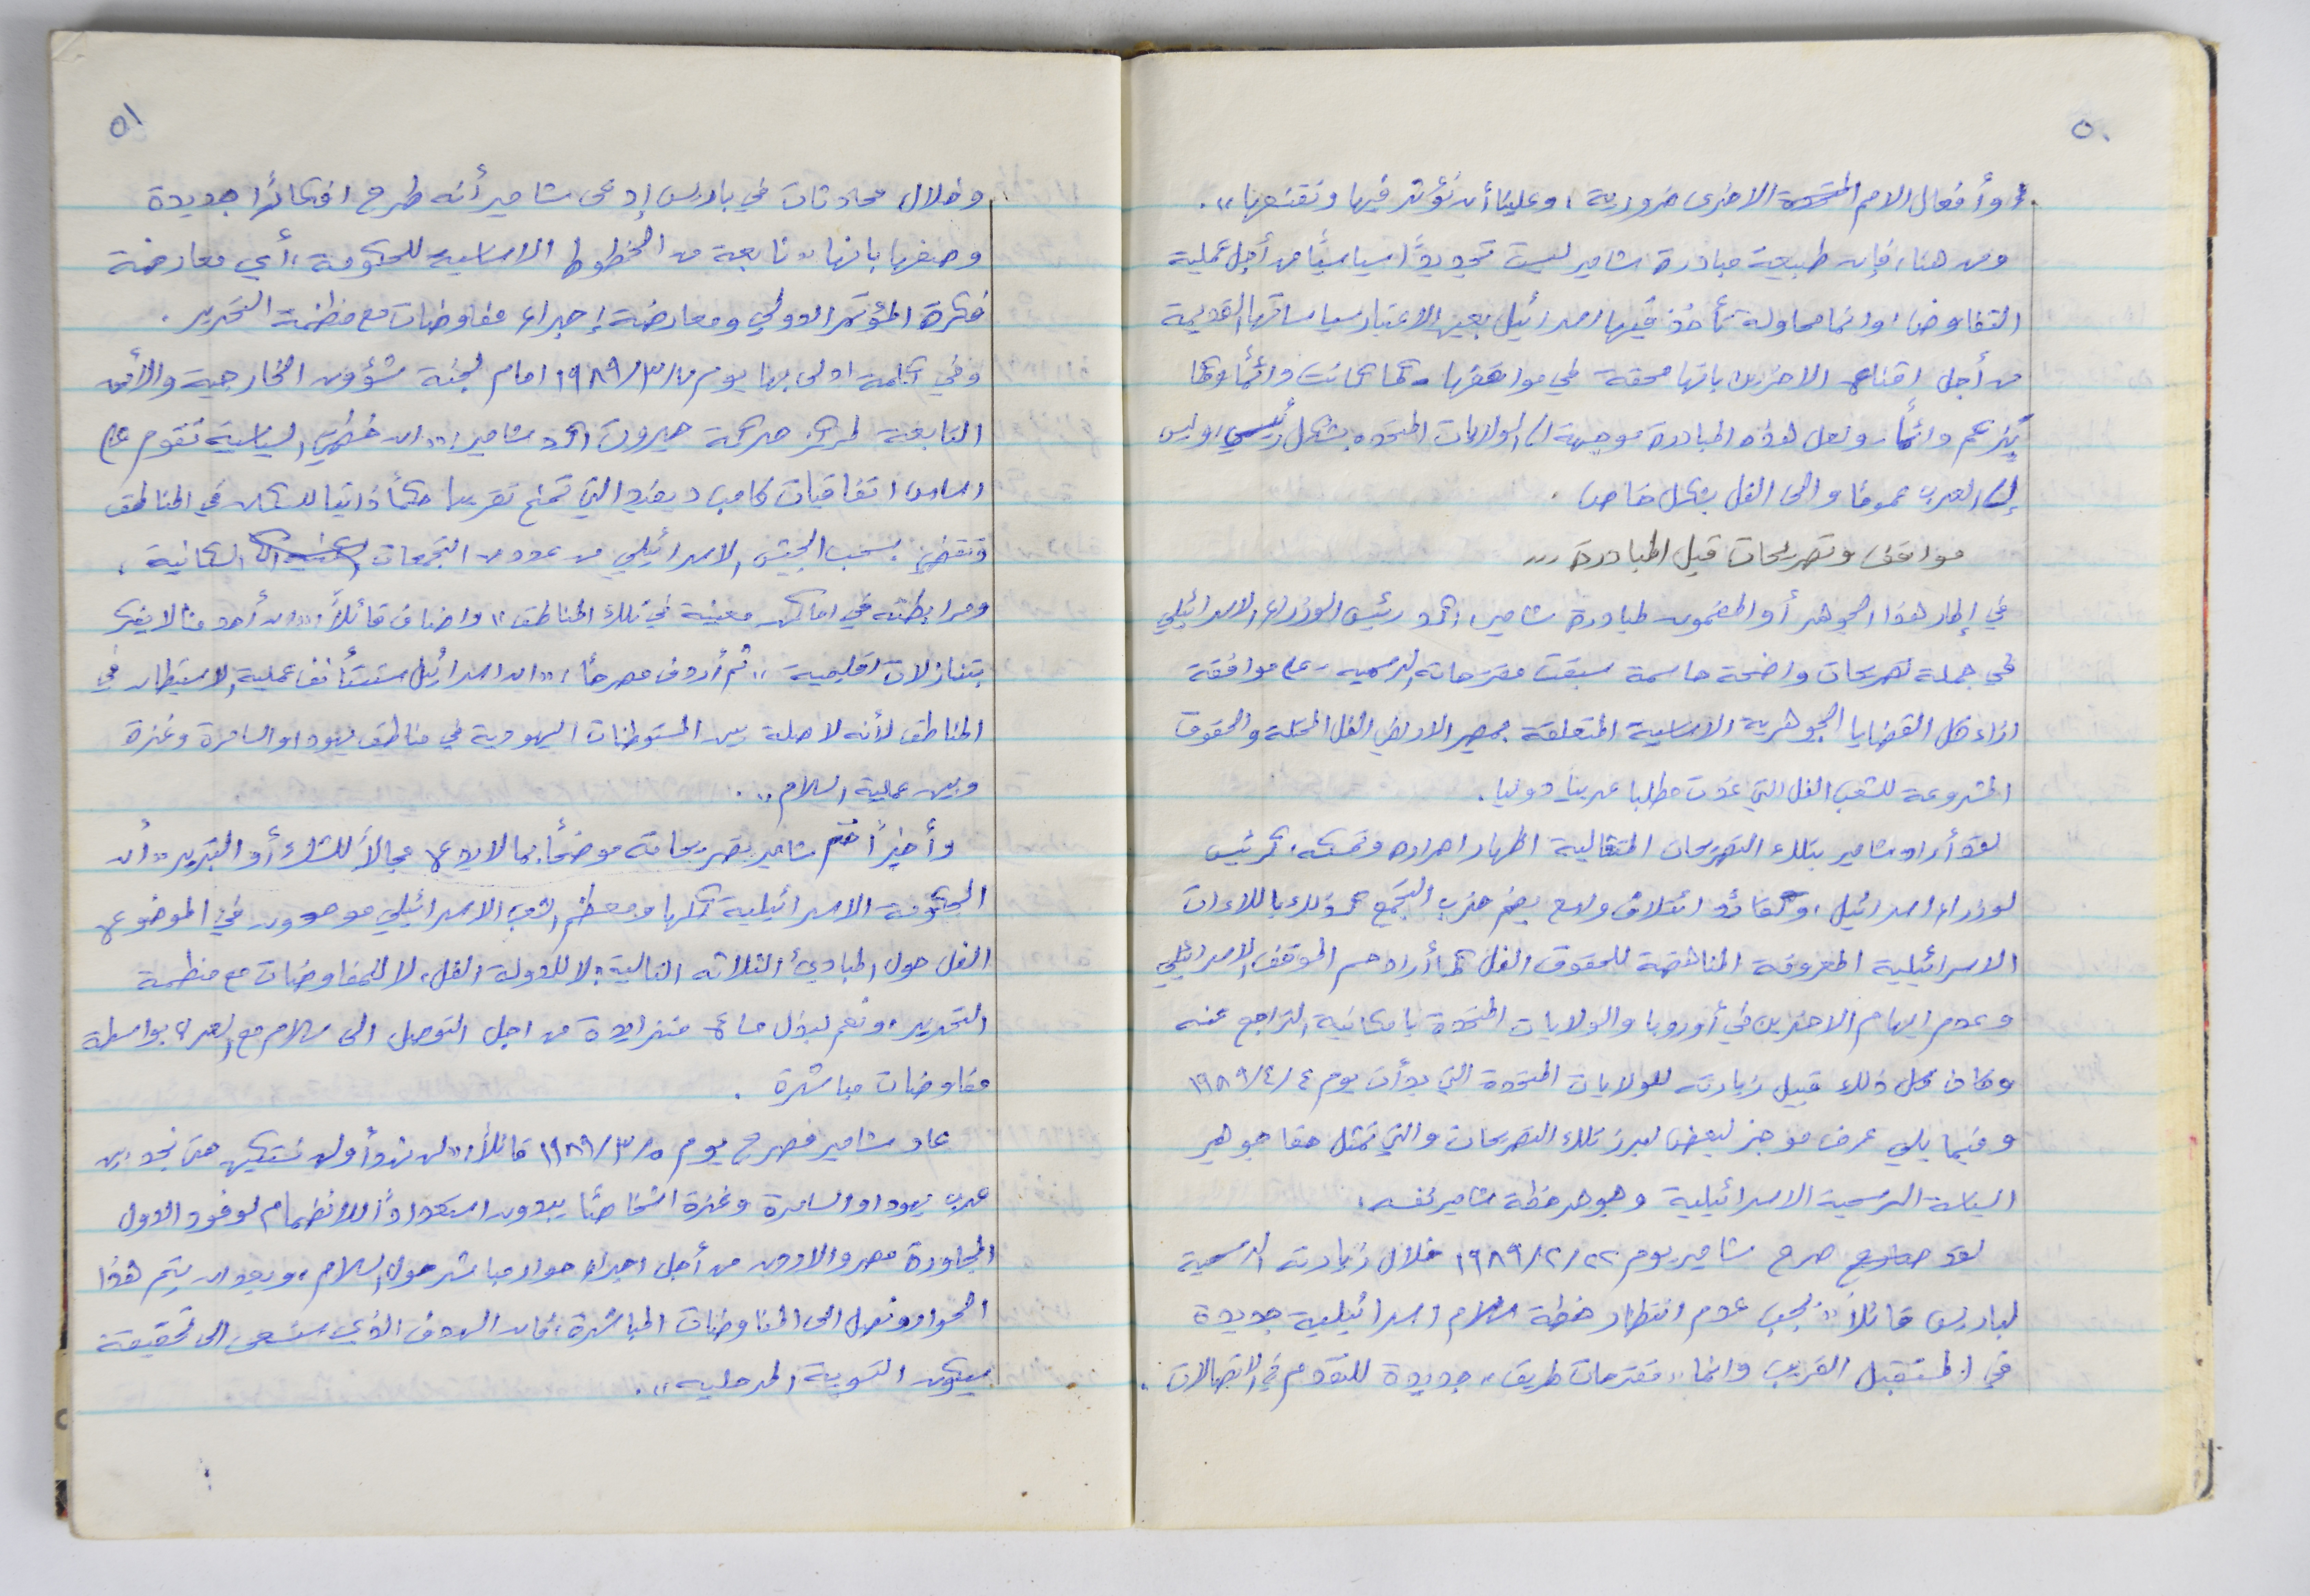 ٥٠
وأفعال الامم المتحدة الاخرى ضرورية، وعلينا أن نؤثر فيها ونقنعها".
ومن هنا، فإن طبيعة مبادرة شامير ليست تجديداً سياسياً من أجل عملية
التفاوض، وانما محاولة تأخذ فيها اسرائيل بعين الاعتبار سياساتها القديمة
من أجل اقناع الاخرين بانها محقة في مواقفها - كما كانت دائماً وكما
تزعم دائماً - ولعل هذه المبادرة موجهة الى الولايات المتحدة بشكل رئيسي، وليس
إلى العرب عموما والى الفل بشكل خاص.
مواقف وتصريحات قبل المبادرة ...
في إطار هذا الجوهر أو المضمون لمبادرة شامير، اكد رئيس الوزراء الاسرائيلي
في جملة تصريحات واضحة حاسمة سبقت مقترحاته الرسمية - على موافقة
ازاء كل القضايا الجوهرية الاساسية المتعلقة بمصير الاراضي الفل المحتلة والحقوق
المشروعة للشعب الفل التي غدت مطلبا عربيا ودوليا.
لقد أراد شامير بتلك التصريحات المتتالية اظهار اصراره وتمسكه، كرئيس
لوزراء اسرائيل، وكقائد ائتلاف واسع يضم حزب التجمع كذلك باللاءات
الاسرائيلية المعروفة المناهضة للحقوق الفل كما أراد حسم الموقف الاسرائيلي
وعدم ايهام الاخرين في أوروبا والولايات المتحدة بامكانية التراجع عنه
وكان كل ذلك قبيل زيارته للولايات المتحدة التي بدأت يوم ٤/٤/١٩٨٩
وفيما يلي عرض موجز لبعض ابرز تلك التصريحات والتي تمثل حقا جوهر
السياسة الرسمية الاسرائيلية وجوهر خطة شامير نفسه:
لقد صرح شامير يوم ٢٢/٢/١٩٨٩ خلال زيارته الرسمية
لباريس قائلاً: "يجب عدم انتظار خطة سلام اسرائيلية جديدة
في المستقبل القريب وانما "مقترحات طريق" جديدة للتقدم في الاتصالات.
٥١
وخلال محادثات في باريس إدعى شامير أنه طرح افكاراً جديدة
وصفها بانها "نابعة من الخطوط الاساسية للحكومة، أي معارضة
فكرة المؤتمر الدولي ومعارضة إجراء مفاوضات مع منظمة التحرير.
وفي كلمة ادلى بها يوم ٧/٣/١٩٨٩ امام لجنة شؤون الخارجية والأمن
التابعة لمركز حركة حيروت اكد شامير: "ان خطتي السياسية تقوم على
اساس اتفاقيات كامب ديفيد التي تمنح تقريبا حكماً ذاتيا للسكان في المناطق
وتقضي بسحب الجيش الاسرائيلي من عدد من التجمعات السكانية،
ومرابطته في اماكن معينة في تلك المناطق" واضاف قائلاً: "ان أحد منا لا يفكر
بتنازلات اقليمية" ثم أردف مصرحاً: "ان اسرائيل ستستأنف عملية الاستيطان في
المناطق لأنه لا صلة بين المستوطنات اليهودية في مناطق يهودا والسامرة وغزة
وبين عملية السلام".
وأخيراً ختم شامير تصريحاته موضحاً بما لا يدع مجالاً للشك أو التبرير "أن
الحكومة الاسرائيلية كلها ومعظم الشعب الاسرائيلي موحدون في الموضوع
الفل حول المبادئ الثلاثة التالية: لا للدولة الفل، لا للمفاوضات مع منظمة
التحرير، ونعم لبذل مساع متزايدة من اجل التوصل الى سلام مع العرب بواسطة
مفاوضات مباشرة.
عاد شامير فصرح يوم ٥/٣/١٩٨٩ قائلاً: "لن نهدأ ولن نستكين حتى نجد بين
عرب يهودا والسامرة وغزة اشخاصاً يبدون استعداداً للانضمام لوفود الدول
المجاورة مصر والاردن من أجل اجراء حوار مباشر حول السلام، وبعد ان يتم هذا
الحوار ونصل الى المفاوضات المباشرة، فان الهدف الذي سنسعى الى تحقيقه
سيكون التسوية المرحلية".